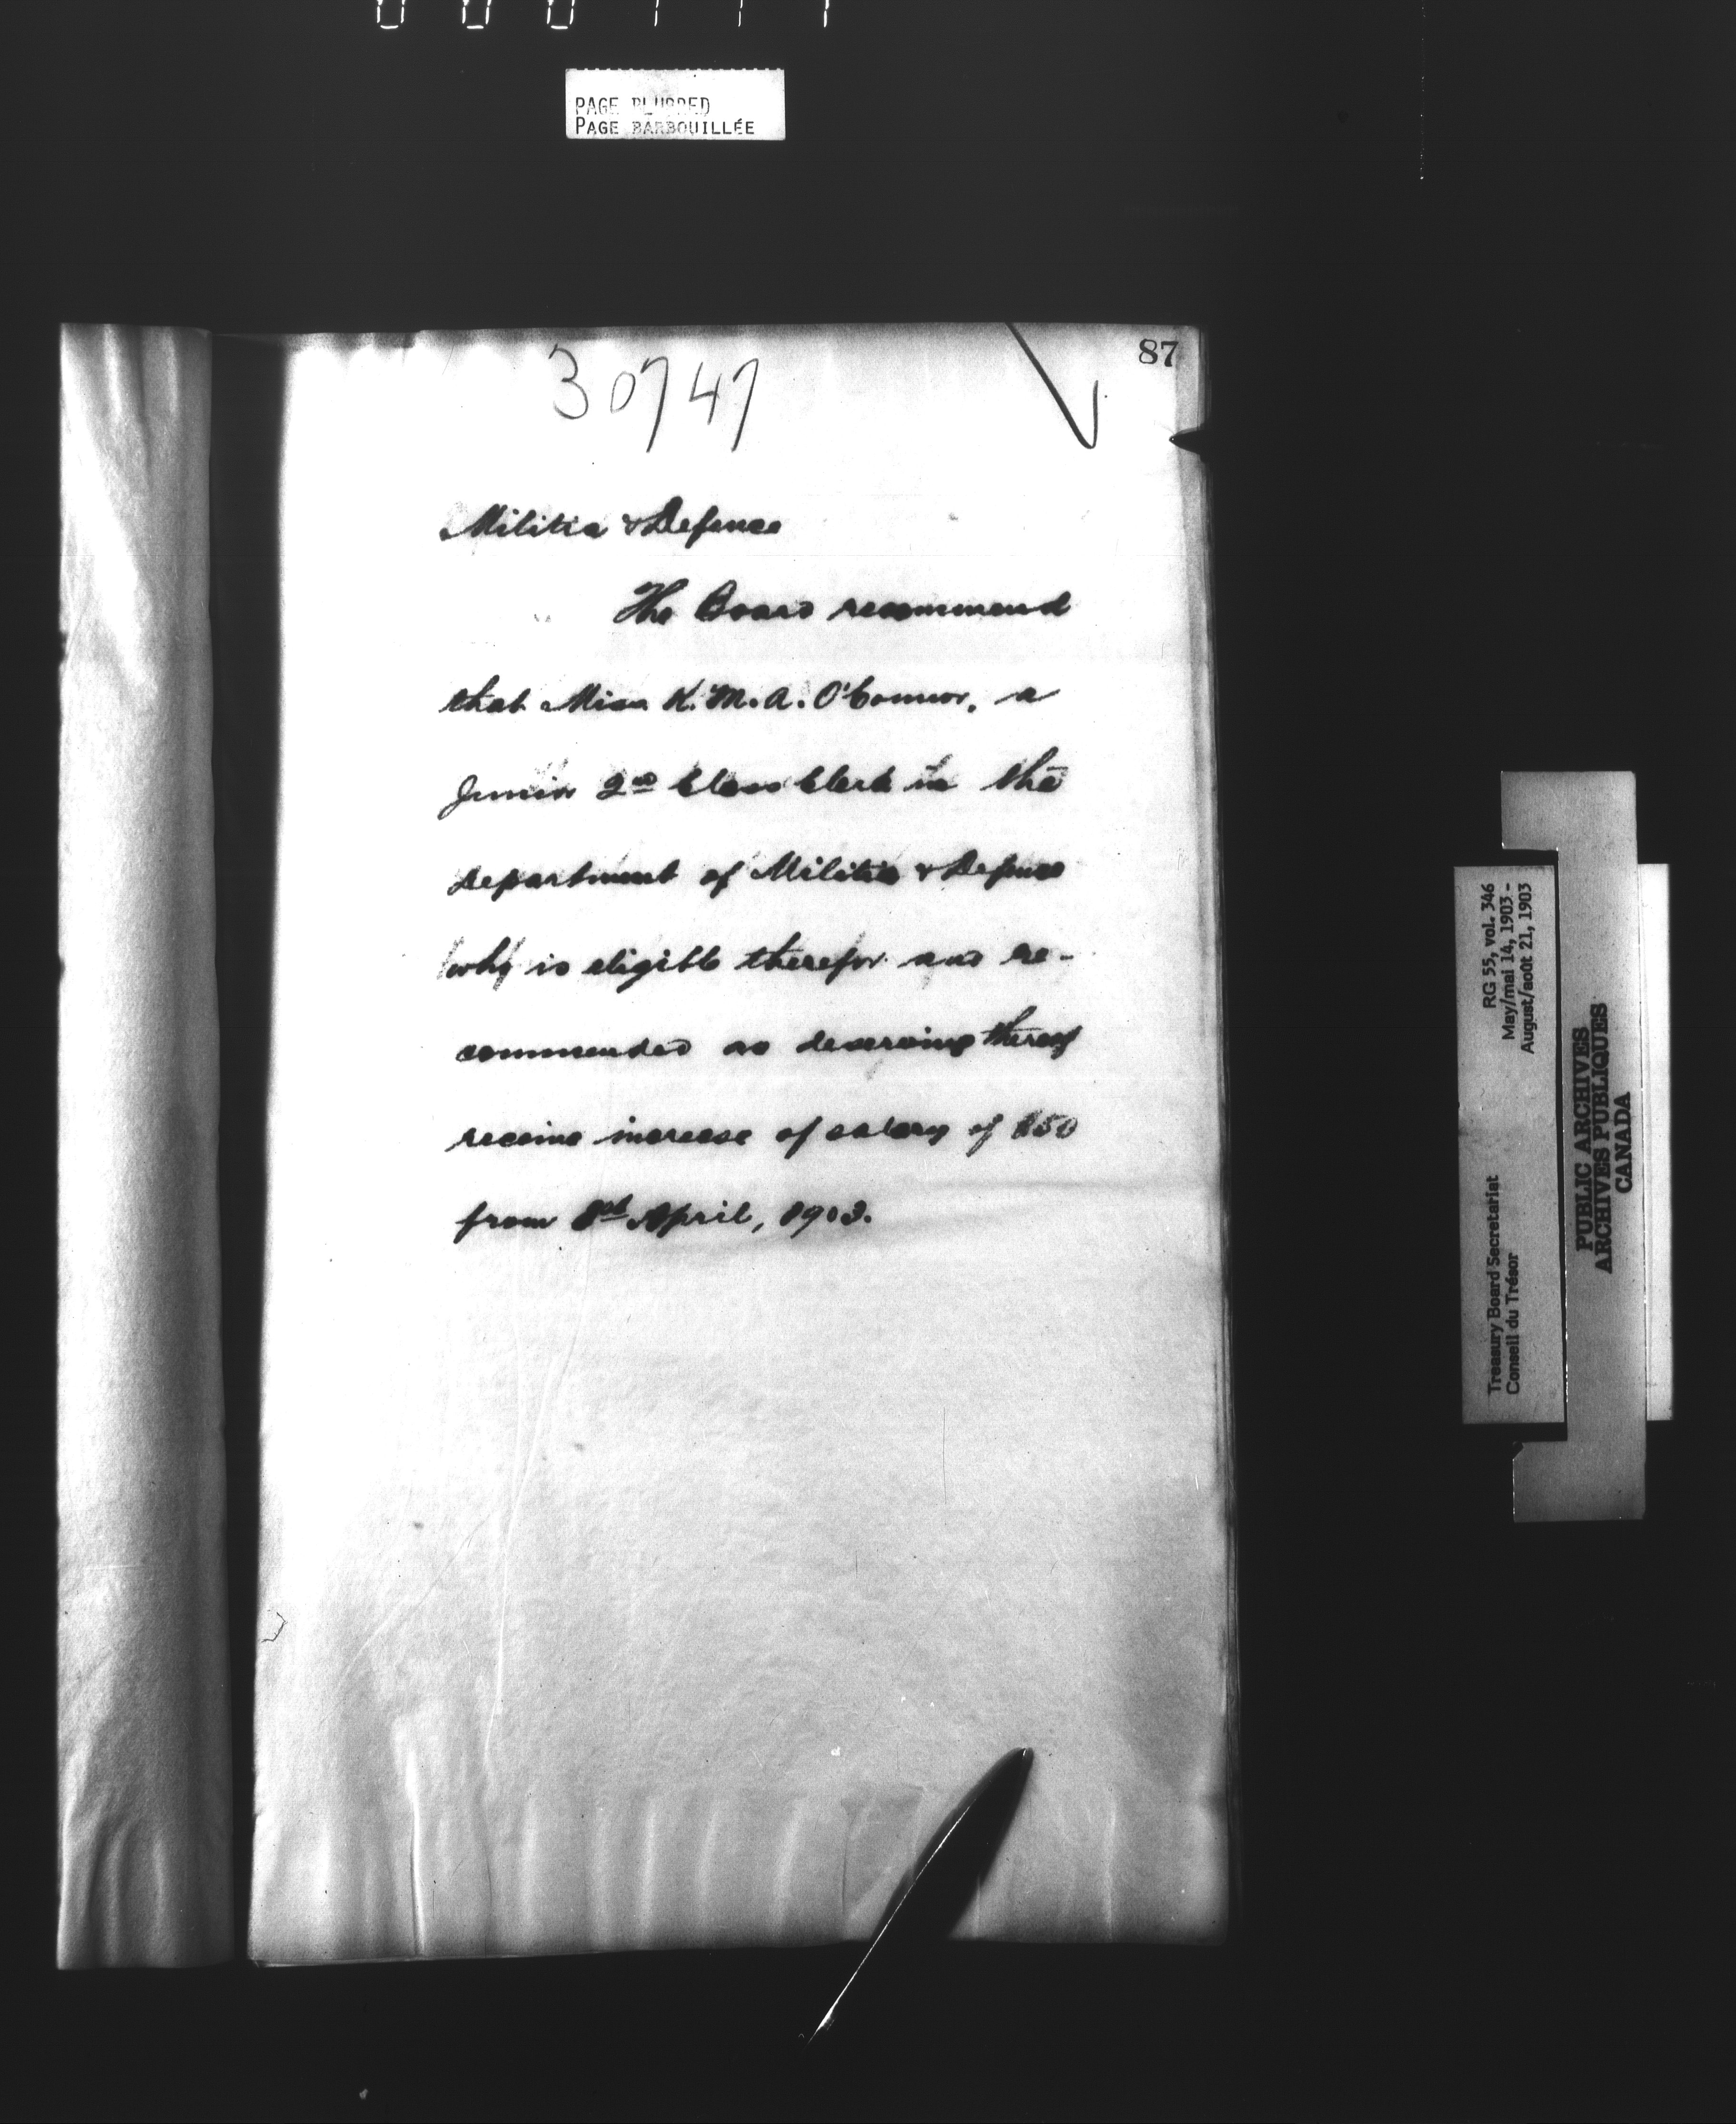 PAGE BLURRED
PAGE BARBOUILLÉE
87
30747
Militia & Defence
The Board recommend
that Miss K. M. A. O'Connor, a
Junior 2nd Class Clerk in the
Department of Militia & Defence
who is eligible therefor and re-
commended as deserving thereof
receive increase of salary of $50
from 1st April, 1903.
RG 55, vol. 346
May/mai 14, 1903 -
August/août 21, 1903
Treasury Board Secretariat
Conseil du Trésor
PUBLIC ARCHIVES
ARCHIVES PUBLIQUES
CANADA